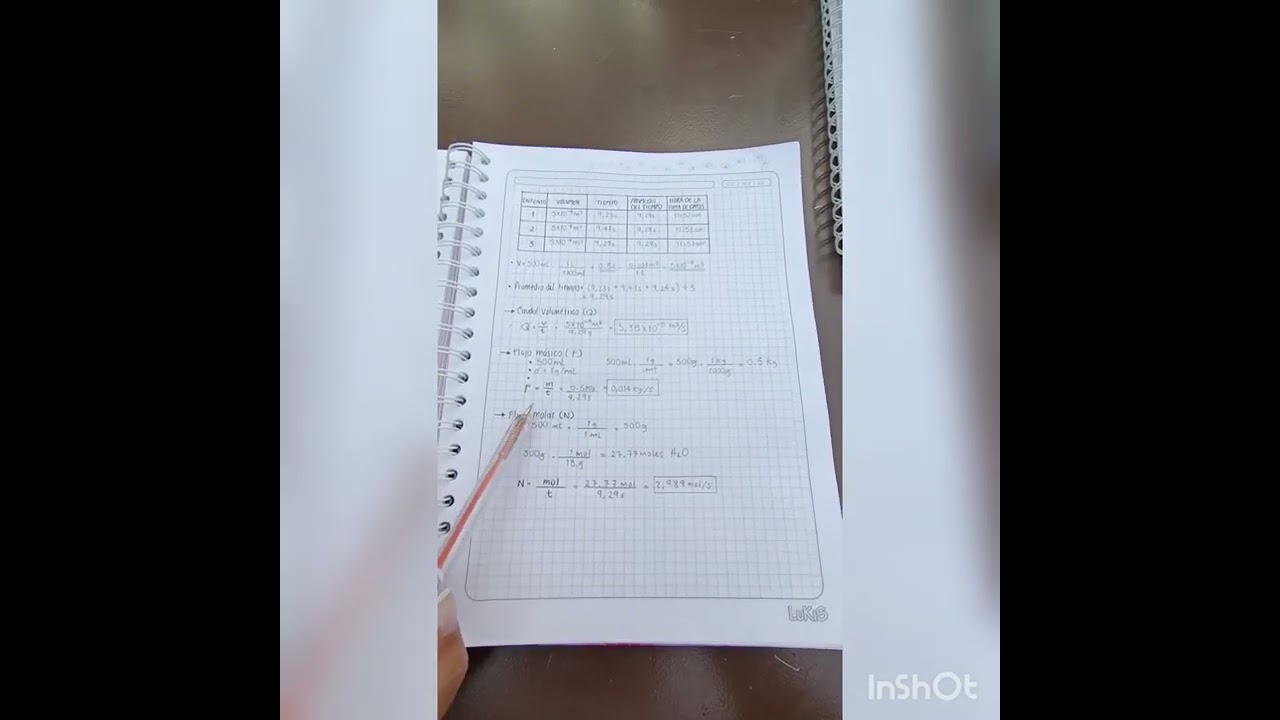 INTENTO VOLUMEN TIEMPO PROMEDIO DEL TIEMPO HORA DE LA TOMA DE DATOS
1 5x10⁻⁴m³ 9,23s 9,29s
2 5x10⁻⁴m³ 9,41s 9,29s
3 5x10⁻⁴m³ 9,29s
• V = 500mL 1L / 1000mL = 0.5L 5x10⁻⁴m³
• Promedio del tiempo = ÷ 3
= 9,29s
→ Caudal volumétrico (Q)
Q = V/t = 5x10⁻⁴m³ / 9,29s = 5,38x10⁻⁵ m³/s
→ Flujo másico (F)
• 500mL 500mL · 1g / mL = 500g · 1Kg / 1000g = 0.5 Kg
• d = 1g/mL
F = m/t = 0.5Kg / 9,29s = 0,014 Kg/s
→ molar (N)
500 mL · 1g / 1mL = 500g
500g · 1mol / 18g = 27,77 moles H₂O
N = mol / t = 27,77 mol / 9,29s = 2,989 mol/s
LUKIS
InShOt